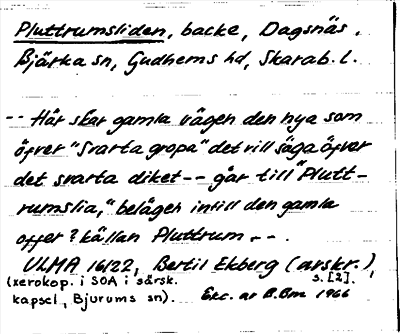 Pluttrumsliden, backe, Dagsnäs,
Bjärka sn, Gudhems hd, Skarab. l.
-- Här skar gamla vägen den nya som
öfver "Svarta gropa" det vill säga öfver
det svarta diket -- går till "Plutt-
rumslia," belägen intill den gamla
offer? källan Pluttrum --.
ULMA 16122, Bertil Ekberg (avskr.),
(xerokop. i SOA i särsk. s. [2].
kapsel, Bjurums sn). Exc. av B.Bm 1966